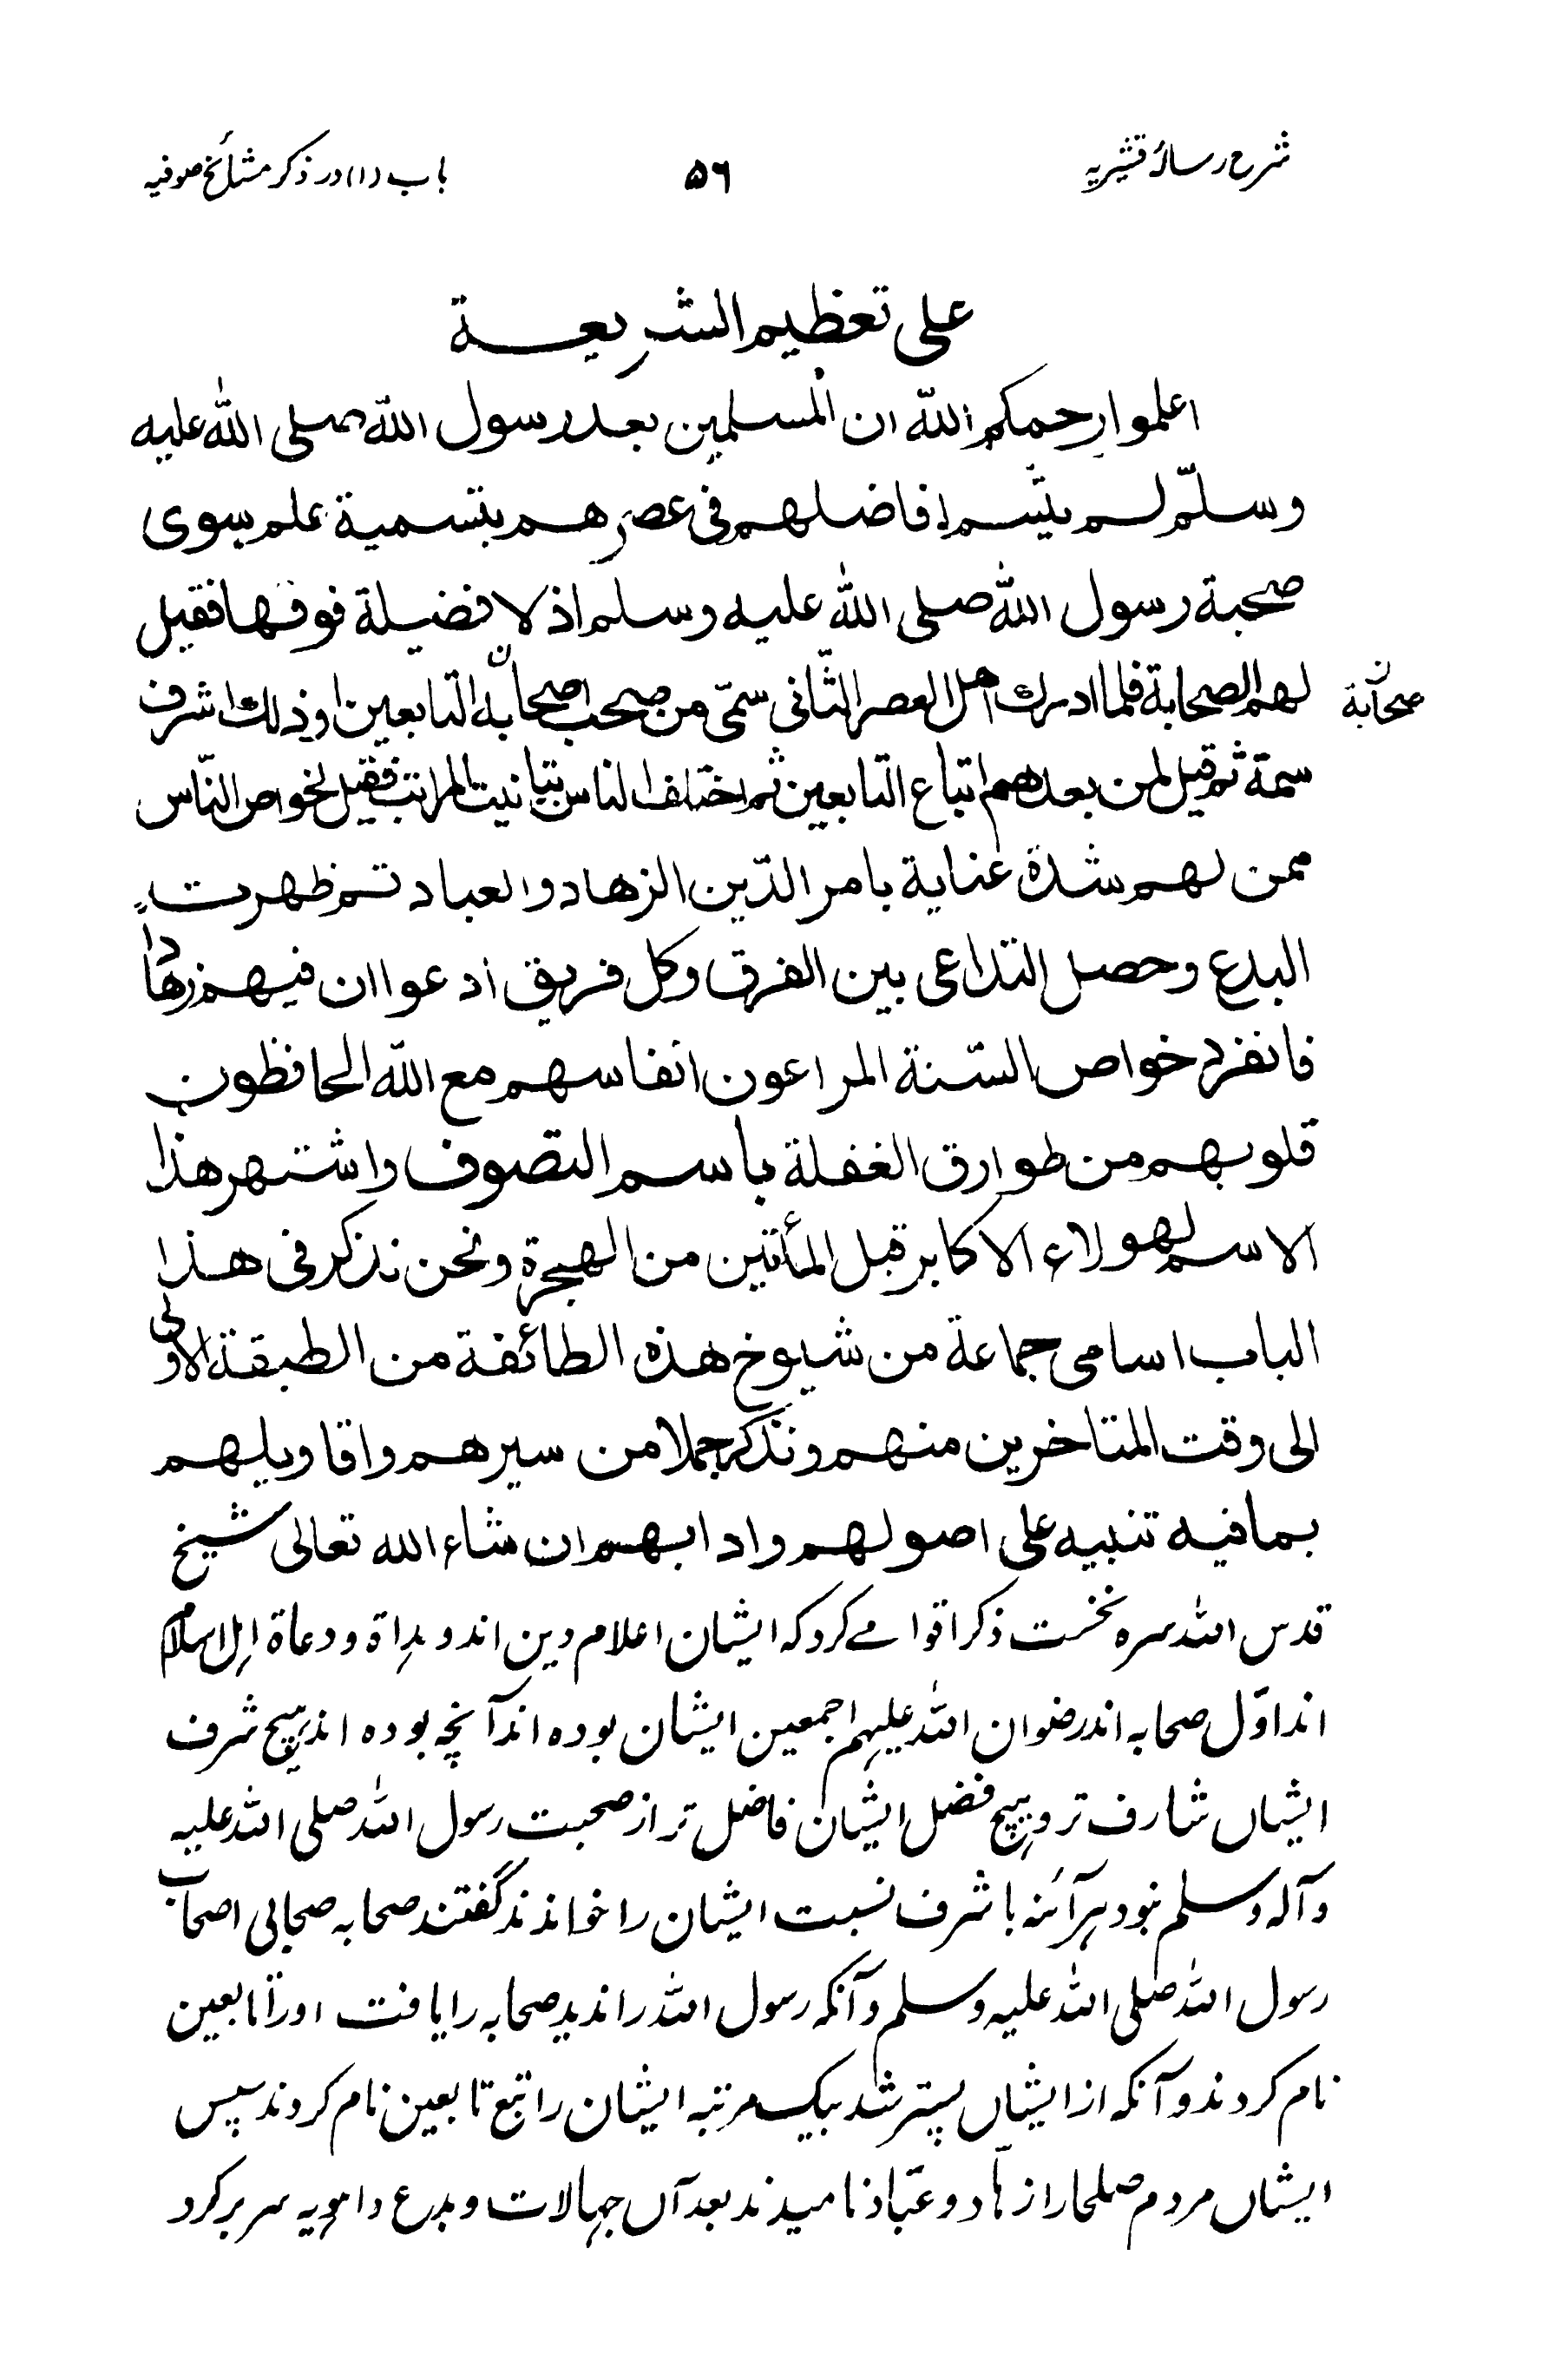 شرح رسالۂ قشیریہ
۵۶
باب (۱) در ذکر مشائخ صوفیہ
علی تعظیم الشریعة
اعلموا رحمکم اللّٰه ان المسلمین بعد رسول اللّٰه صلی اللّٰه علیه
وسلّم لم یتّسم افاضلهم فی عصرهم بتسمیة علم سوی
صحبة رسول اللّٰه صلی اللّٰه علیه وسلم اذ لا فضیلة فوقها فقیل
لهم الصحابة فلما ادرك اهل العصر الثّانی سمّی من صحب اصحابه التابعین او ذلك اشرف
ن صحابة
سمة ثم قیل لمن بعدهم اتباع التابعین ثم اختلف الناس بتبانیت المراتب فقیل لخواص النّاس
ممن لهم شدة عنایة بامر الدّین الزهاد و العباد ثم ظهرت
البدع وحصل التداعی بین الفرق وکل فریق ادعوا ان فیهم زهادا
فانفرد خواص السّنة المراعون انفاسهم مع اللّٰه الحافظون
قلوبهم من طوارق الغفلة باسم التصوف واشتهر هذا
الاسم لهولاء الاکابر قبل المأتین من الهجرة ونحن نذکر فی هذا
الباب اسامی جماعة من شیوخ هذه الطائفة من الطبقة الاولی
الی وقت المتاخرین منهم ونذکر جملا من سیرهم واقاویلهم
بما فیه تنبیه علی اصولهم وادابهم ان شاء الله تعالی شیخ
قدس اللّٰه سره نخست ذکر اقوامے کرد که ایشان اعلام دین اند و بداة و دعاة اہل اسلام
اند اوّل صحابه اند رضوان اللّٰه علیهم اجمعین ایشان بوده اند آنچه بوده اند ہیچ شرف
ایشاں شارف تر و ہیچ فضل ایشان فاضل تر از صحبت رسول اللّٰه صلی اللّٰه علیه
وآله وسلم نبود ہر آئنه با شرف نسبت ایشان را خواندند گفتند صحابه صحابی اصحاب
رسول اللّٰه صلی اللّٰه علیه وسلم و آنکه رسول اللّٰه را ندید صحابه را یافت اورا تابعین
نام کردند و آنکه از ایشاں پستر شد بیک مرتبه ایشان را تبع تابعین نام کردند سپس
ایشاں مردم صلحا را زہّاد و عبّاد نامیدند بعد آں جہالات و بدع و اہویه سر بر کرد